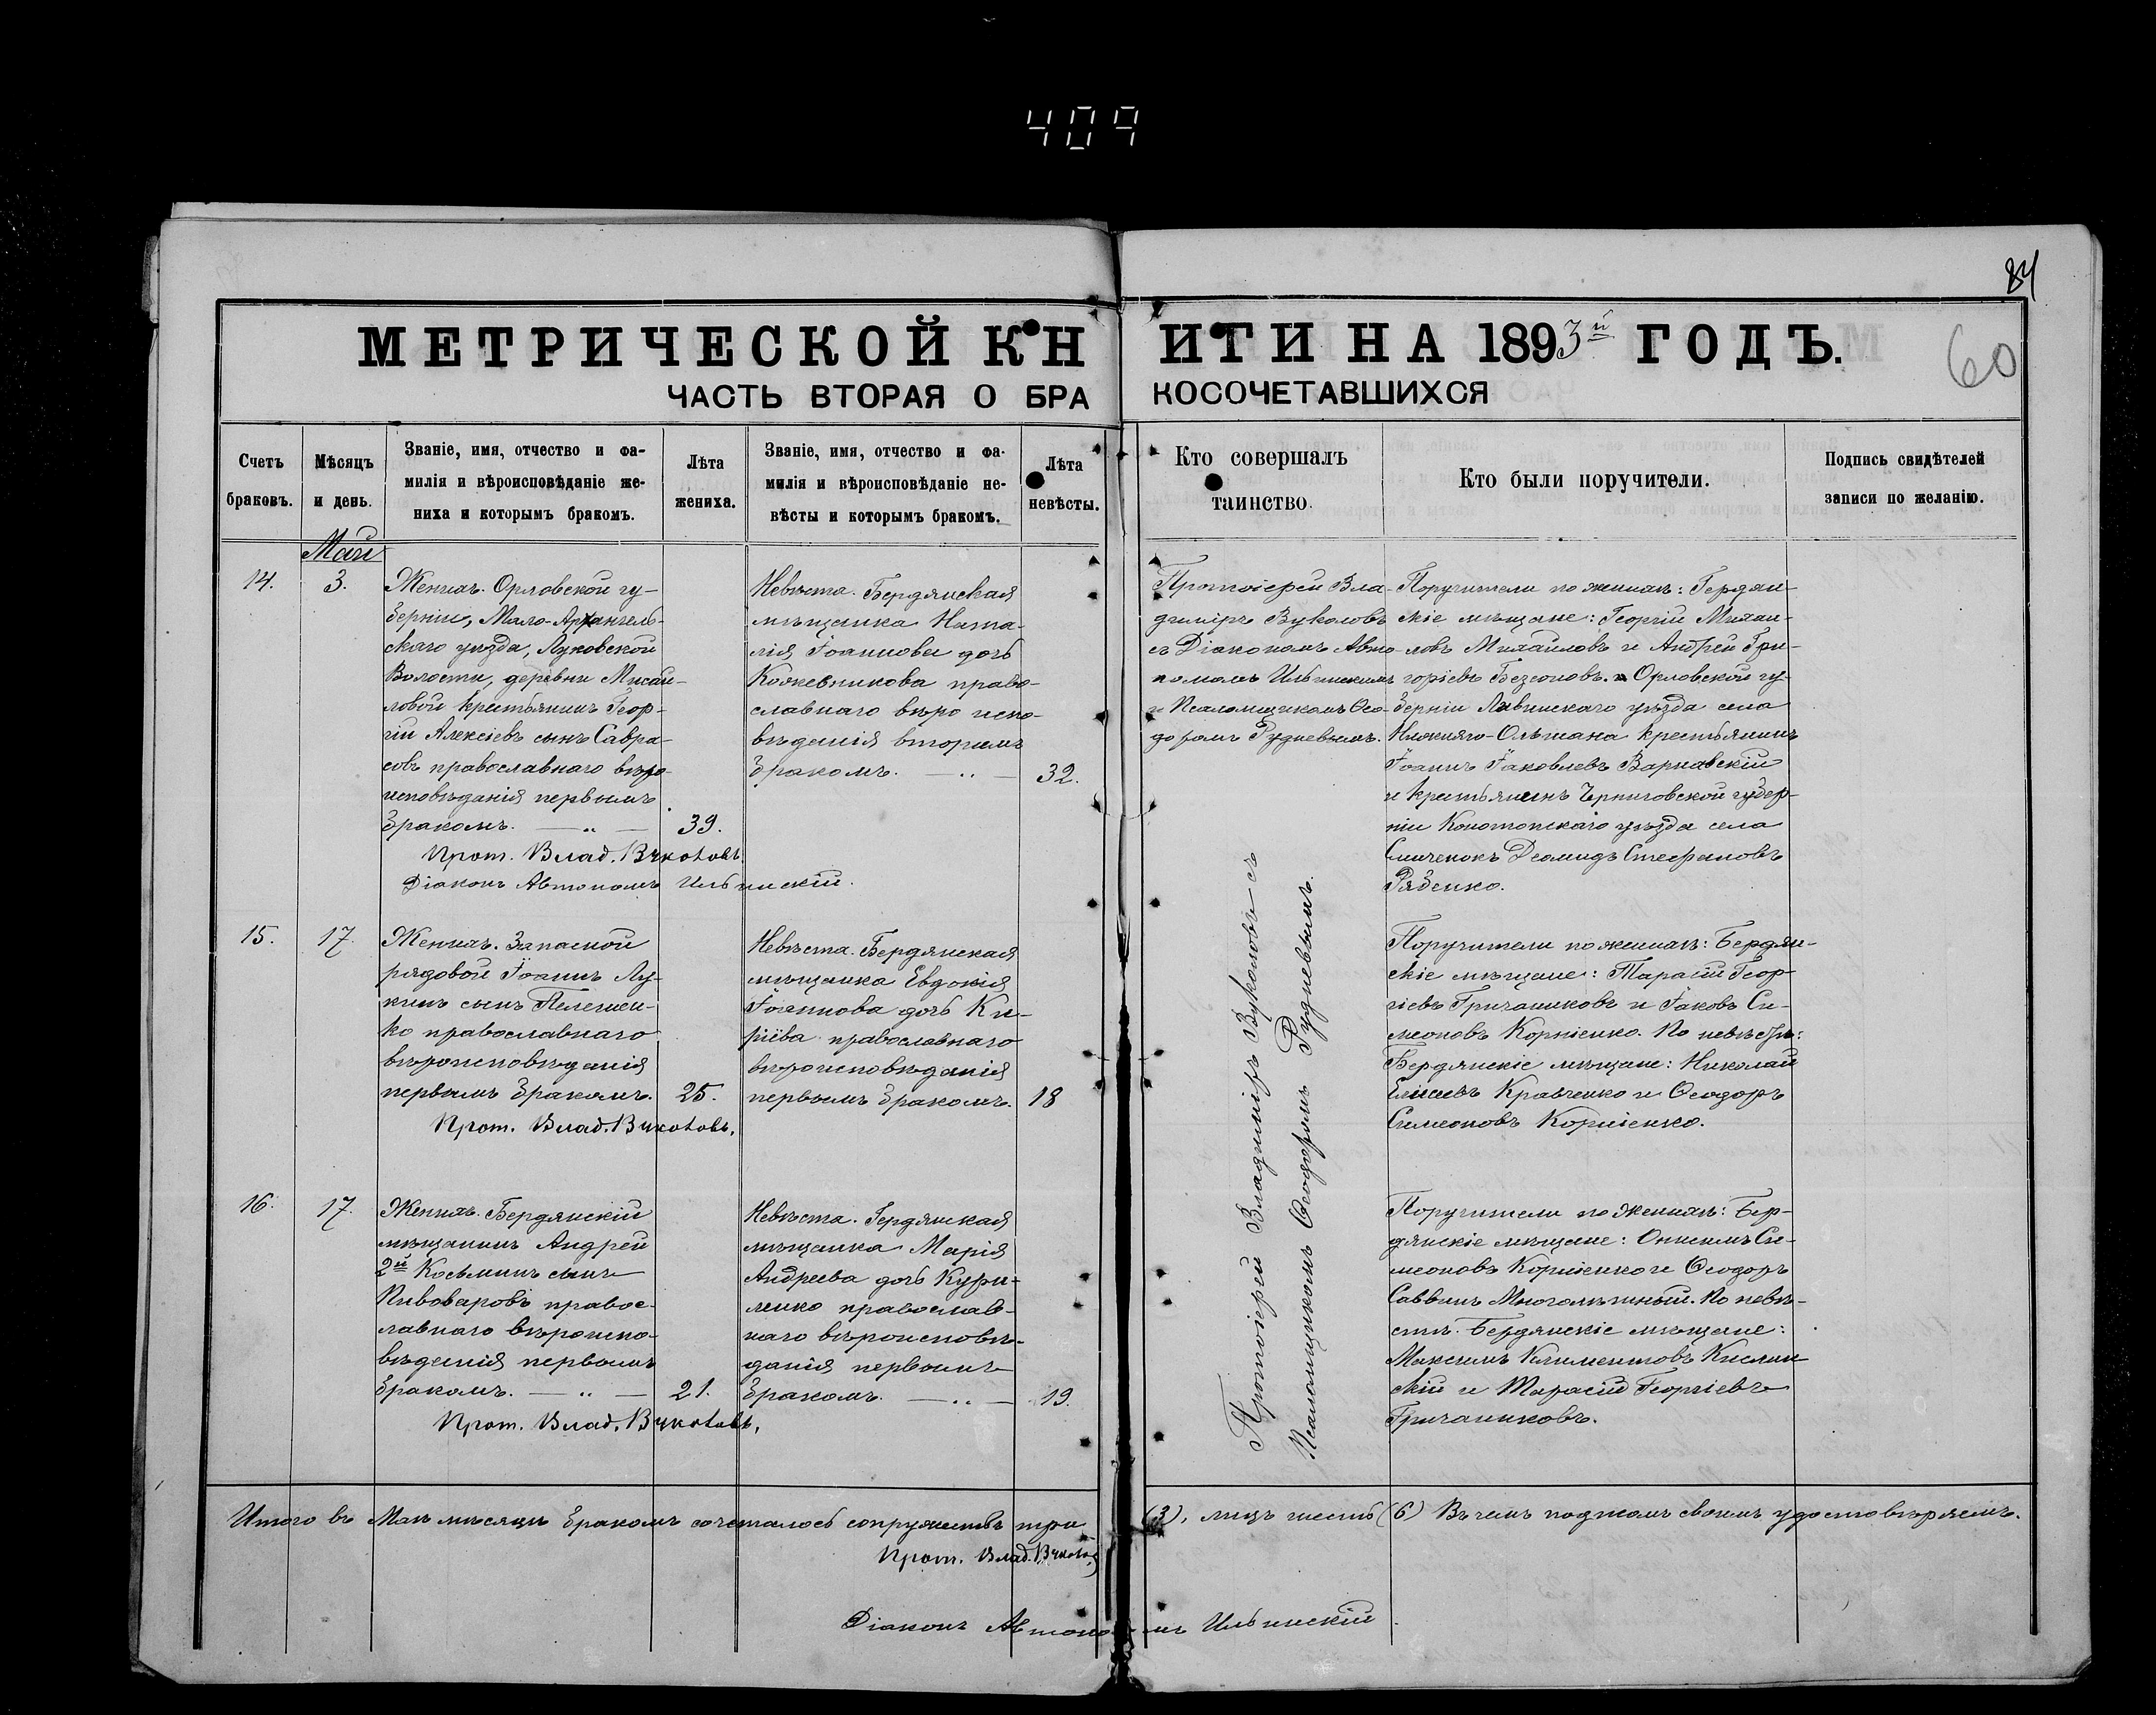 409
84
60
МЕТРИЧЕСКОЙ КНИГИ НА 1893й ГОДЪ.
ЧАСТЬ ВТОРАЯ О БРАКОСОЧЕТАВШИХСЯ
Счетъ
браковъ.
Мѣсяцъ
и день.
Званіе, имя, отчество и фа-
милія и вѣроисповѣданіе же-
ниха и которымъ бракомъ.
Лѣта
жениха.
Званіе, имя, отчество и фа-
милія и вѣроисповѣданіе не-
вѣсты и которымъ бракомъ.
Лѣта
невѣсты.
Кто совершалъ
таинство.
Кто были поручители.
Подпись свидѣтелей
записи по желанію.
Май
14.
3.
Женихъ. Орловской гу-
берніи, Мало-Архангель-
скаго уѣзда, Луковской
Волости, деревни Мисай-
ловой крестьянинъ Геор-
гій Алексіевъ сынъ Савра-
совъ православнаго вѣро-
исповѣданія первымъ
бракомъ. — „ —
39.
Прот. Влад. Вуколовъ.
Діаконъ Автономъ Ильинскій.
Невѣста. Бердянская
мѣщанка Ната-
лія Іоаннова дочь
Кожевникова право-
славнаго вѣро испо-
вѣданія вторымъ
бракомъ. — „ —
32.
Протоіерей Вла-
димиръ Вуколовъ
съ Діакономъ Авто-
номомъ Ильинскимъ
и Псаломщикомъ Ѳео-
доромъ Рудневымъ.
Поручители по женихѣ: Бердян-
скіе мѣщане: Георгій Михаи-
ловъ Михайловъ и Андрей Гри-
горіевъ Безсоновъ. Орловской гу-
берніи Ливинскаго уѣзда села
Нижняго-Ольшана крестьянинъ
Іоаннъ Іаковлевъ Варнавскій
и крестьянинъ Черниговской губер-
ніи Конотопскаго уѣзда села
Діомидъ Стефановъ
Рябенко.
15.
17.
Женихъ. Запасной
рядовой Іоаннъ Лу-
кинъ сынъ Пелешен-
ко православнаго
вѣроисповѣданія
первымъ бракомъ.
25.
Прот. Влад. Вуколовъ.
Невѣста. Бердянская
мѣщанка Евдокія
Іоаннова дочь Ки-
ріева православнаго
вѣроисповѣданія
первымъ бракомъ.
18
Протоіерей Владимиръ Вуколовъ съ
Псаломщикомъ Ѳеодоромъ Рудневымъ.
Поручители по женихѣ: Бердян-
скіе мѣщане: Тарасій Геор-
гіевъ Гричаниковъ и Іаковъ Си-
меоновъ Корніенко. По невѣстѣ:
Бердянскіе мѣщане: Николай
Елисеевъ Кравченко и Ѳеодоръ
Симеоновъ Корніенко.
16.
17.
Женихъ. Бердянскій
мѣщанинъ Андрей
2й Косьминъ сынъ
Пивоваровъ правос-
лавнаго вѣроиспо-
вѣданія первымъ
бракомъ. — „ —
21.
Прот. Влад. Вуколовъ.
Невѣста. Бердянская
мѣщанка Марія
Андреева дочь Кури-
ленко православ-
наго вѣроисповѣ-
данія первымъ
бракомъ. — „ —
19.
Поручители по женихѣ: Бер-
дянскіе мѣщане: Онисимъ Си-
меоновъ Корніенко и Ѳеодоръ
Саввинъ Многолѣтный. По невѣ-
стѣ. Бердянскіе мѣщане:
Максимъ Климентовъ Кислин-
скій и Тарасій Георгіевъ
Гричаниковъ.
Итого въ Маѣ мѣсяцѣ бракомъ сочеталось супружествъ три (3), лицъ шесть (6) Въ чемъ подписомъ своимъ удостовѣряемъ.
Прот. Влад. Вуколовъ
Діаконъ Автономъ Ильинскій